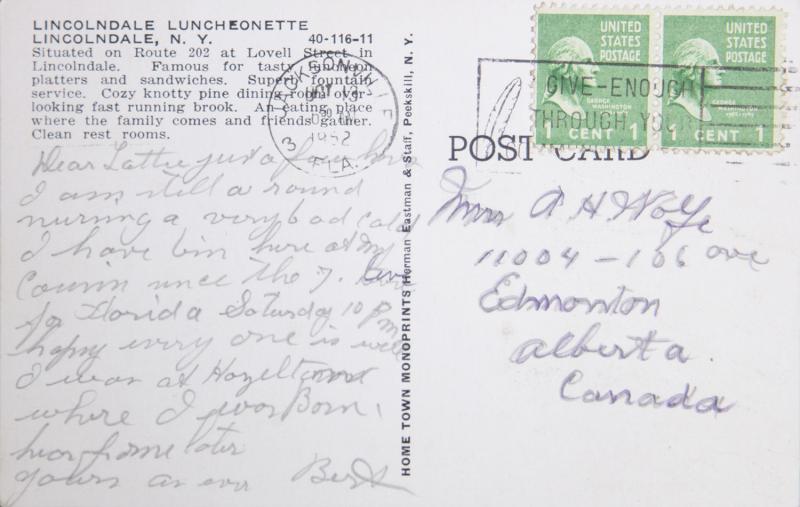 LINCOLNDALE LUNCHEONETTE
LINCOLNDALE, N. Y. 40-116-11
Situated on Route 202 at Lovell Street in
Lincolndale. Famous for tasty luncheon
platters and sandwiches. Superb fountain
service. Cozy knotty pine dining room over-
looking fast running brook. An eating place
where the family comes and friends gather.
Clean rest rooms.
Dear Lattie just a few lines
I am still a round
nursing a very bad cold
I have bin here at my
Cousin since the 7.
for Florida Saturday 10 pm
happy every one is well
I was at Hazelton
where I was Born.
hear from me later
yours as ever Bert
HOME TOWN MONOPRINTS Herman Eastman & Staff, Peekskill, N. Y.
JACKSONVILLE
NOV 13
1952
3
FLA.
GIVE-ENOUGH
THROUGH YOUR
UNITED
STATES
POSTAGE
GEORGE
WASHINGTON
1 CENT 1
UNITED
STATES
POSTAGE
GEORGE
WASHINGTON
1 CENT 1
POST CARD
Mrs A H Wolfe
11004-106 ave
Edmonton
alberta.
Canada